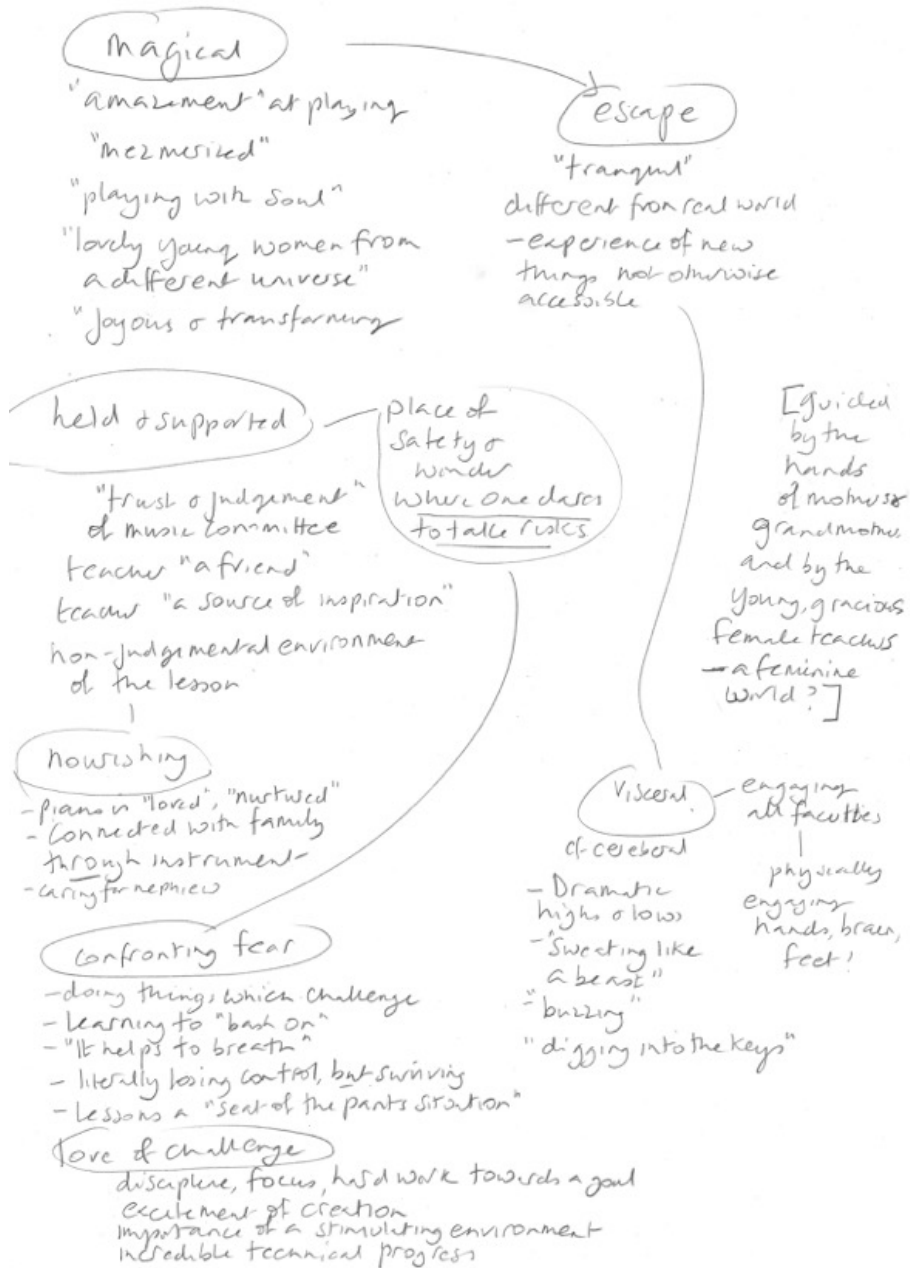 magical
"amazement" at playing
"mezmerized"
"playing with soul"
"lovely young women from
a different universe"
"joyous & transforming
escape
"tranquil"
different from real world
- experience of new
things not otherwise
accessible
held & supported
place of
safety &
wonder
where one dares
to take risks
"trust & judgement"
of music committee
teacher "a friend"
teacher "a source of inspiration"
non-judgemental environment
of the lesson
[guided
by the
hands
of mothers &
grandmothers
and by the
young, gracious
female teachers
- a feminine
world?]
nourishing
- piano is "loved", "nurtured"
- Connected with family
through instrument -
- caring for nephew
visceral
cf cerebral
- Dramatic
highs & lows
- "sweating like
a beast"
- "buzzing"
"digging into the keys"
engaging
all faculties
physically
engaging
hands, brain,
feet!
confronting fear
- doing things which challenge
- Learning to "bash on"
- "It helps to breath"
- literally losing control, but surviving
- Lessons a "seat of the pants situation"
love of challenge
discipline, focus, hard work towards a goal
excitement of creation
importance of a stimulating environment
incredible technical progress